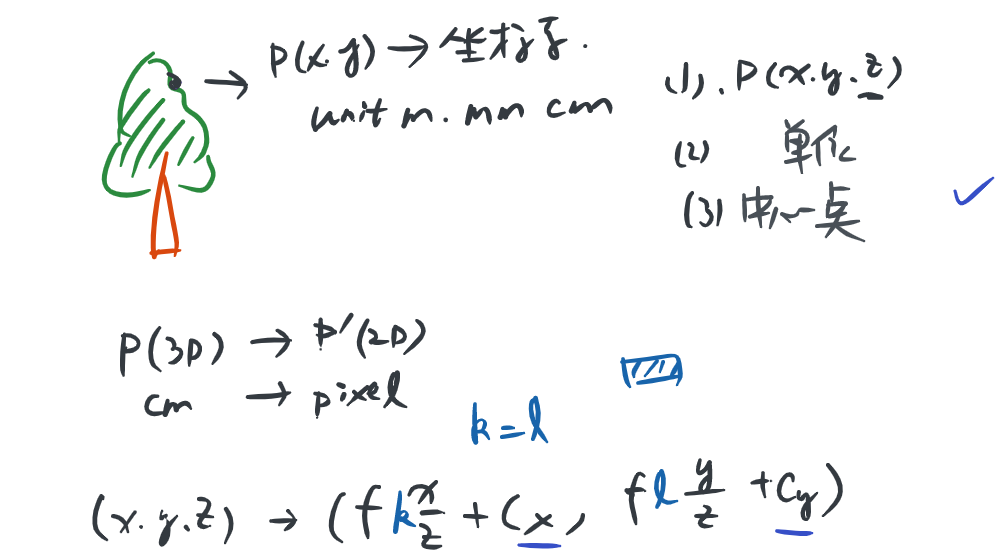 P(x.y) → 坐标系.
unit m. mm cm
(1). P(x.y.z)
(2) 单位
(3) 中心点
P(3D) → P'(2D)
cm → pixel
k=l
(x.y.z) → (f k x/z + Cx, f l y/z + Cy)